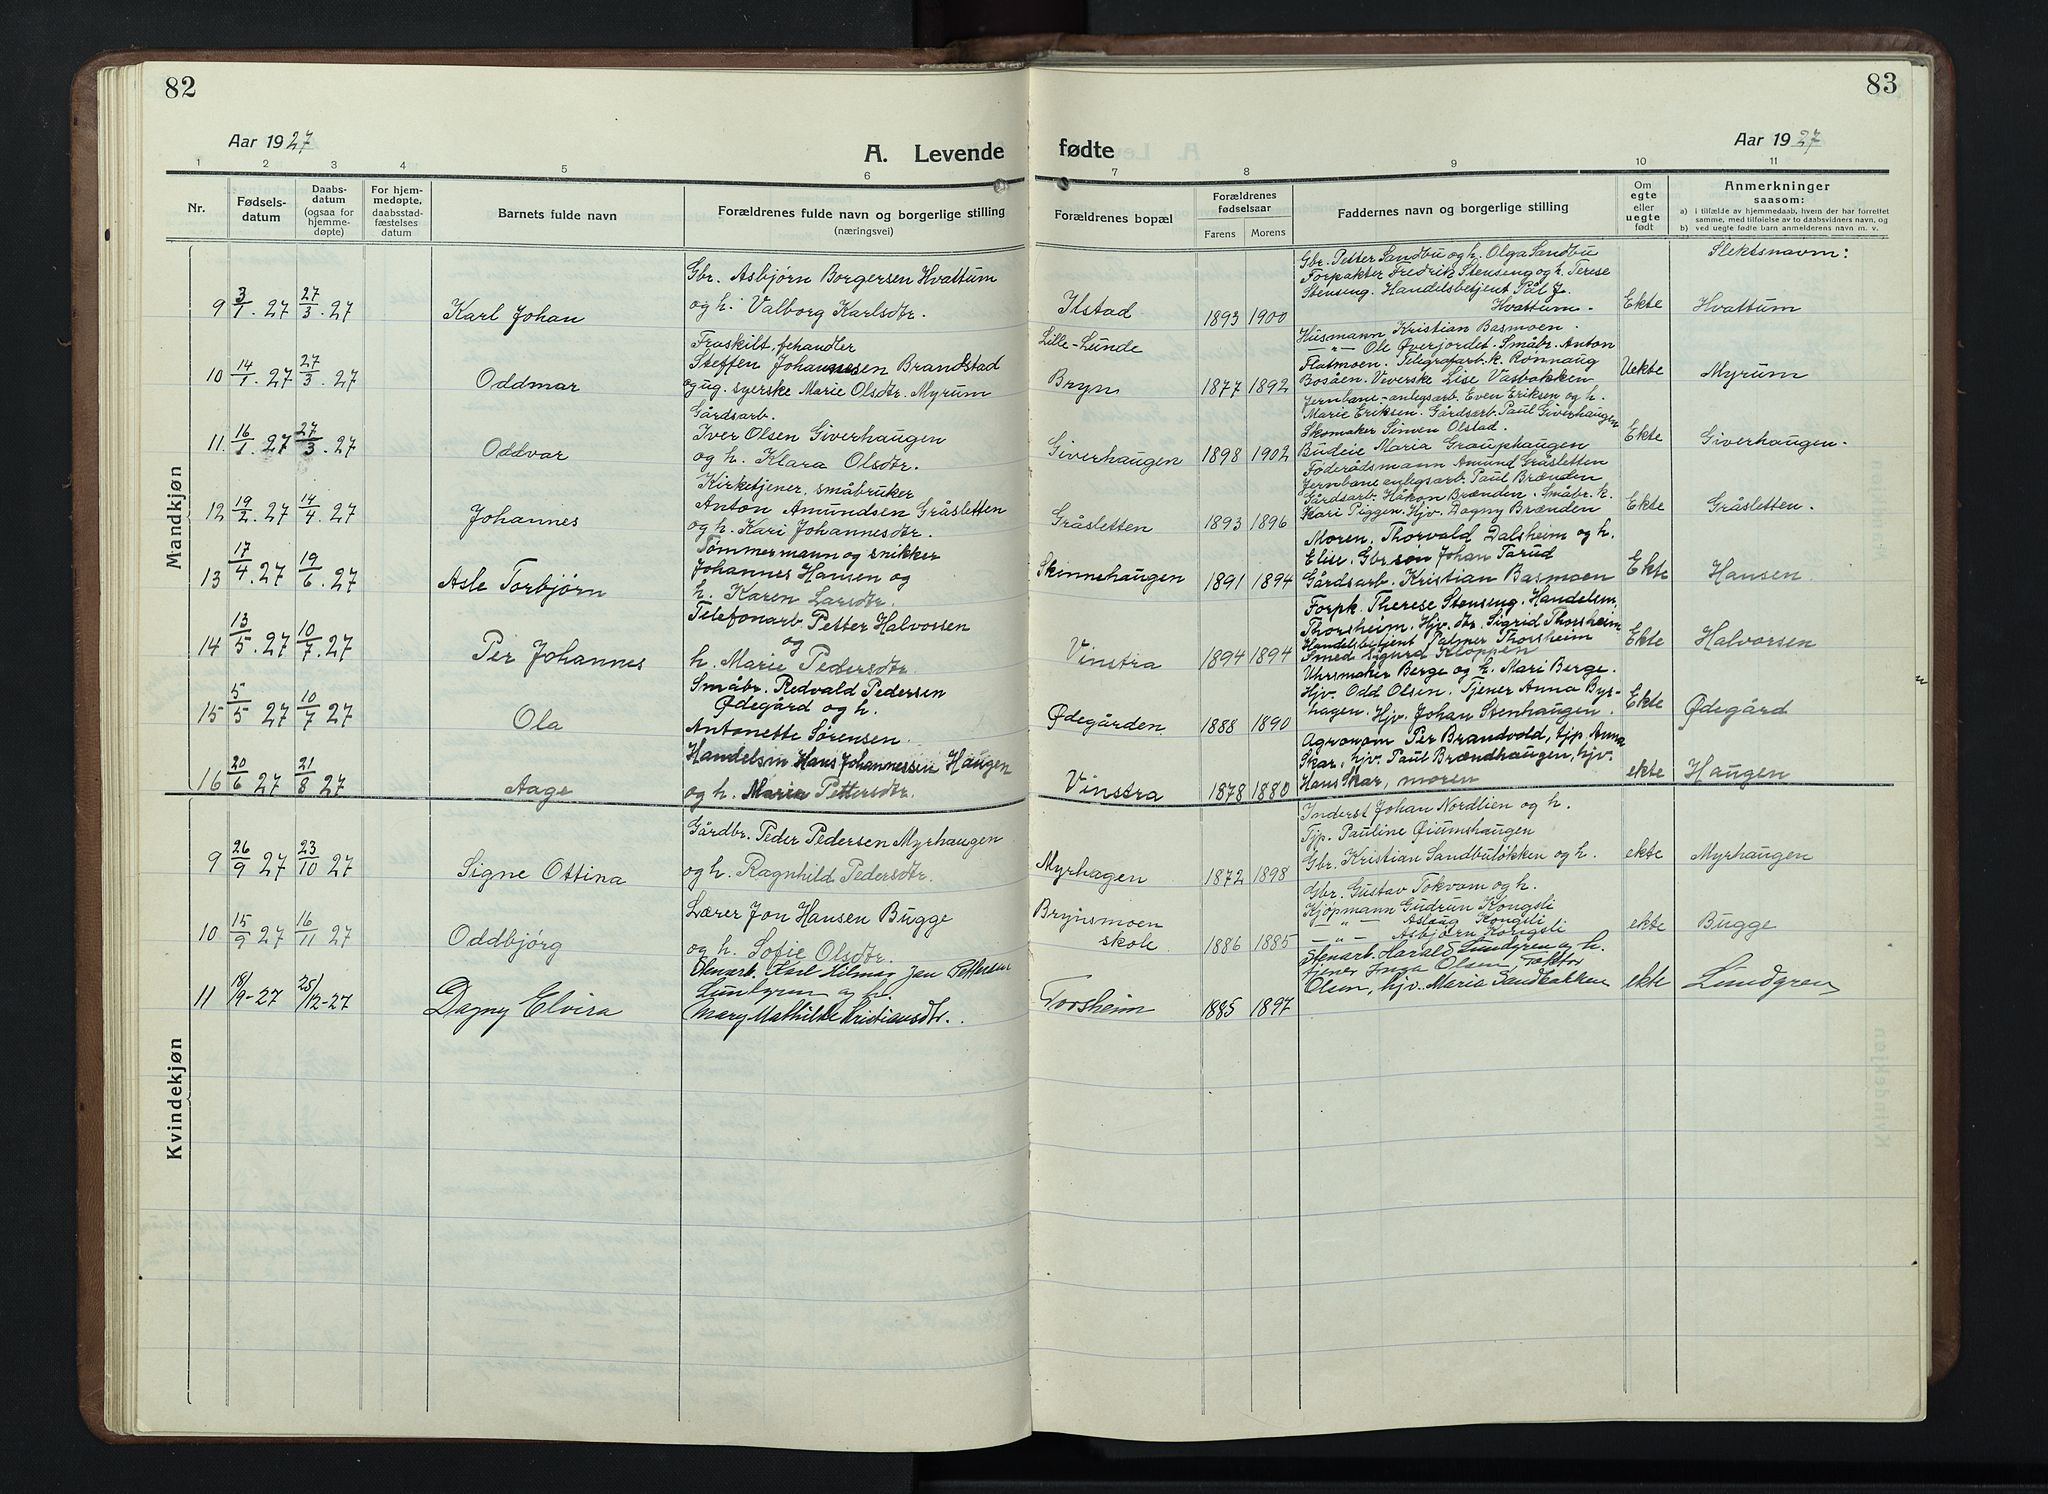 82
83
Aar 1927
A. Levende
fødte
Aar 1927
1 2 3 4 5 6 7 8 9 10 11
Nr.
Fødsels-
datum
Daabs-
datum
(ogsaa for
hjemme-
døpte)
For hjem-
medøpte,
daabsstad-
fæstelses
datum
Barnets fulde navn
Forældrenes fulde navn og borgerlige stilling
(næringsvei)
Forældrenes bopæl
Forældrenes
fødselsaar
Farens
Morens
Faddernes navn og borgerlige stilling
Om
egte
eller
uegte
født
Anmerkninger
saasom:
a) i tilfælde av hjemmedaab, hvem der har forrettet
samme, med tilføielse av to daabsvidners navn, og
b) ved uegte fødte barn anmelderens navn m. v.
Mandkjøn
Slektsnavn:
9 3/1. 27 27/3. 27
Karl Johan
Gbr. Asbjørn Borgersen Hvattum
og h. Valborg Karlsdtr.
Ilstad
1893 1900
Gbr. Petter Sandbu og h. Olga Sandbu
Forpakter Fredrik Stenseng og h. Terese
Stenseng. Handelsbetjent Pål J.
Hvattum.
Ekte
Hvattum
10 14/1. 27 27/3. 27
Oddmar
Fraskilt, fehandler
Steffen Johannesen Brandstad
og ug. syerske Marie Olsdtr. Myrum
Lille-Lunde
Bryn
1877 1892
Husmann Kristian Basmoen.
—"— Ole Øverjordet. Småbr. Anton
Flatmoen. Telegrafarb. k. Rønnaug
Bosåen. Veverske Lise Vasbakken
Uekte
Myrum
11. 16/1. 27 27/3. 27
Oddvar
Gårdsarb.
Iver Olsen Giverhaugen
og h. Klara Olsdtr.
Giverhaugen
1898 1902
Jernbane-anlegsarb. Even Eriksen og h.
Marie Eriksen. Gårdsarb. Paul Giverhaugen
Skomaker Simen Olstad.
Budeie Maria Grauphaugen
Ekte
Giverhaugen.
12 19/2. 27 14/4. 27
Johannes
Kirketjener, småbruker
Anton Amundsen Gråsletten
og h. Kari Johannesdtr.
Gråsletten
1893 1896
Føderådsmann Amund Gråsletten
Jernbaneanlegsarb. Paul Brænden
Gårdsarb. Håkon Brænden. Småbr. k.
Kari Piggen. Hjv. Dagny Brænden
Ekte
Gråsletten.
13 17/4. 27 19/6. 27
Asle Torbjørn
Tømmermann og snikker
Johannes Hansen og
h. Karen Larsdtr.
Skinnehaugen
1891 1894
Moren. Thorvald Dalsheim og h.
Elise. Gbr.søn Johan Tarud
Gårdsarb. Kristian Basmoen
Ekte
Hansen.
14 13/5. 27 10/7. 27
Per Johannes
Telefonarb. Petter Halvorsen
og
h. Marie Pedersdtr.
Vinstra
1894 1894
Forpk. Therese Stenseng. Handelsm.
Thorsheim. Hjv. dtr. Sigrid Thorsheim
Handelsbetjent Palmer Thorsheim
Smed Sigurd Kloppen
Ekte
Halvorsen
15 5/5 27 10/7 27
Ola
Småbr. Redvald Pedersen
Ødegård og h.
Antonette Sørensen.
Ødegården
1888 1890
Uhrsmaker Berge og h. Mari Berge.
Hjv. Odd Olsen. Tjener Anna Byr-
hagen. Hjv. Johan Stenhaugen.
Ekte
Ødegård
16 20/6 27 21/8 27
Aage
Handelsm Hans Johannessen Haugen
og h. Marie Pettersdtr.
Vinstra
1878 1880
Agronom Per Brandvold, tjp. Anna
Skar, hjv. Paul Brændhaugen, hjv.
Hans Skar, moren
ekte
Haugen
Kvindekjøn
9 26/9 27 23/10 27
Signe Ottina
Gårdbr. Peder Pedersen Myrhaugen
og h. Ragnhild Pedersdtr.
Myrhagen
1872 1898
Inderst Johan Nordlien og h.
Tjp. Pauline Øiumshaugen
Gbr. Kristian Sandbuløkken og h.
ekte
Myrhaugen
10 15/9 27 16/11 27
Oddbjørg
Lærer Jon Hansen Bugge
og h. Sofie Olsdtr.
Brynsmoen
skole.
1886 1885
Gbr. Gustav Tokvam og h.
Kjøpmann Gudrun Kongsli
—"— Aslaug Kongsli
—"— Asbjørn Kongsli
ekte
Bugge
11 18/9-27 25/12-27
Dagny Elvira
Stenarb. Karl Hilmar Jan Pettersen
Lundgren og h.
Mary Mathilde Kristiansdtr.
Torsheim
1885 1897
Stenarb. Harald Lundgren og h.
tjener Inga Olsen,
Olsen, hjv. Maria Sandbakken
ekte
Lundgren
Kvindekjøn